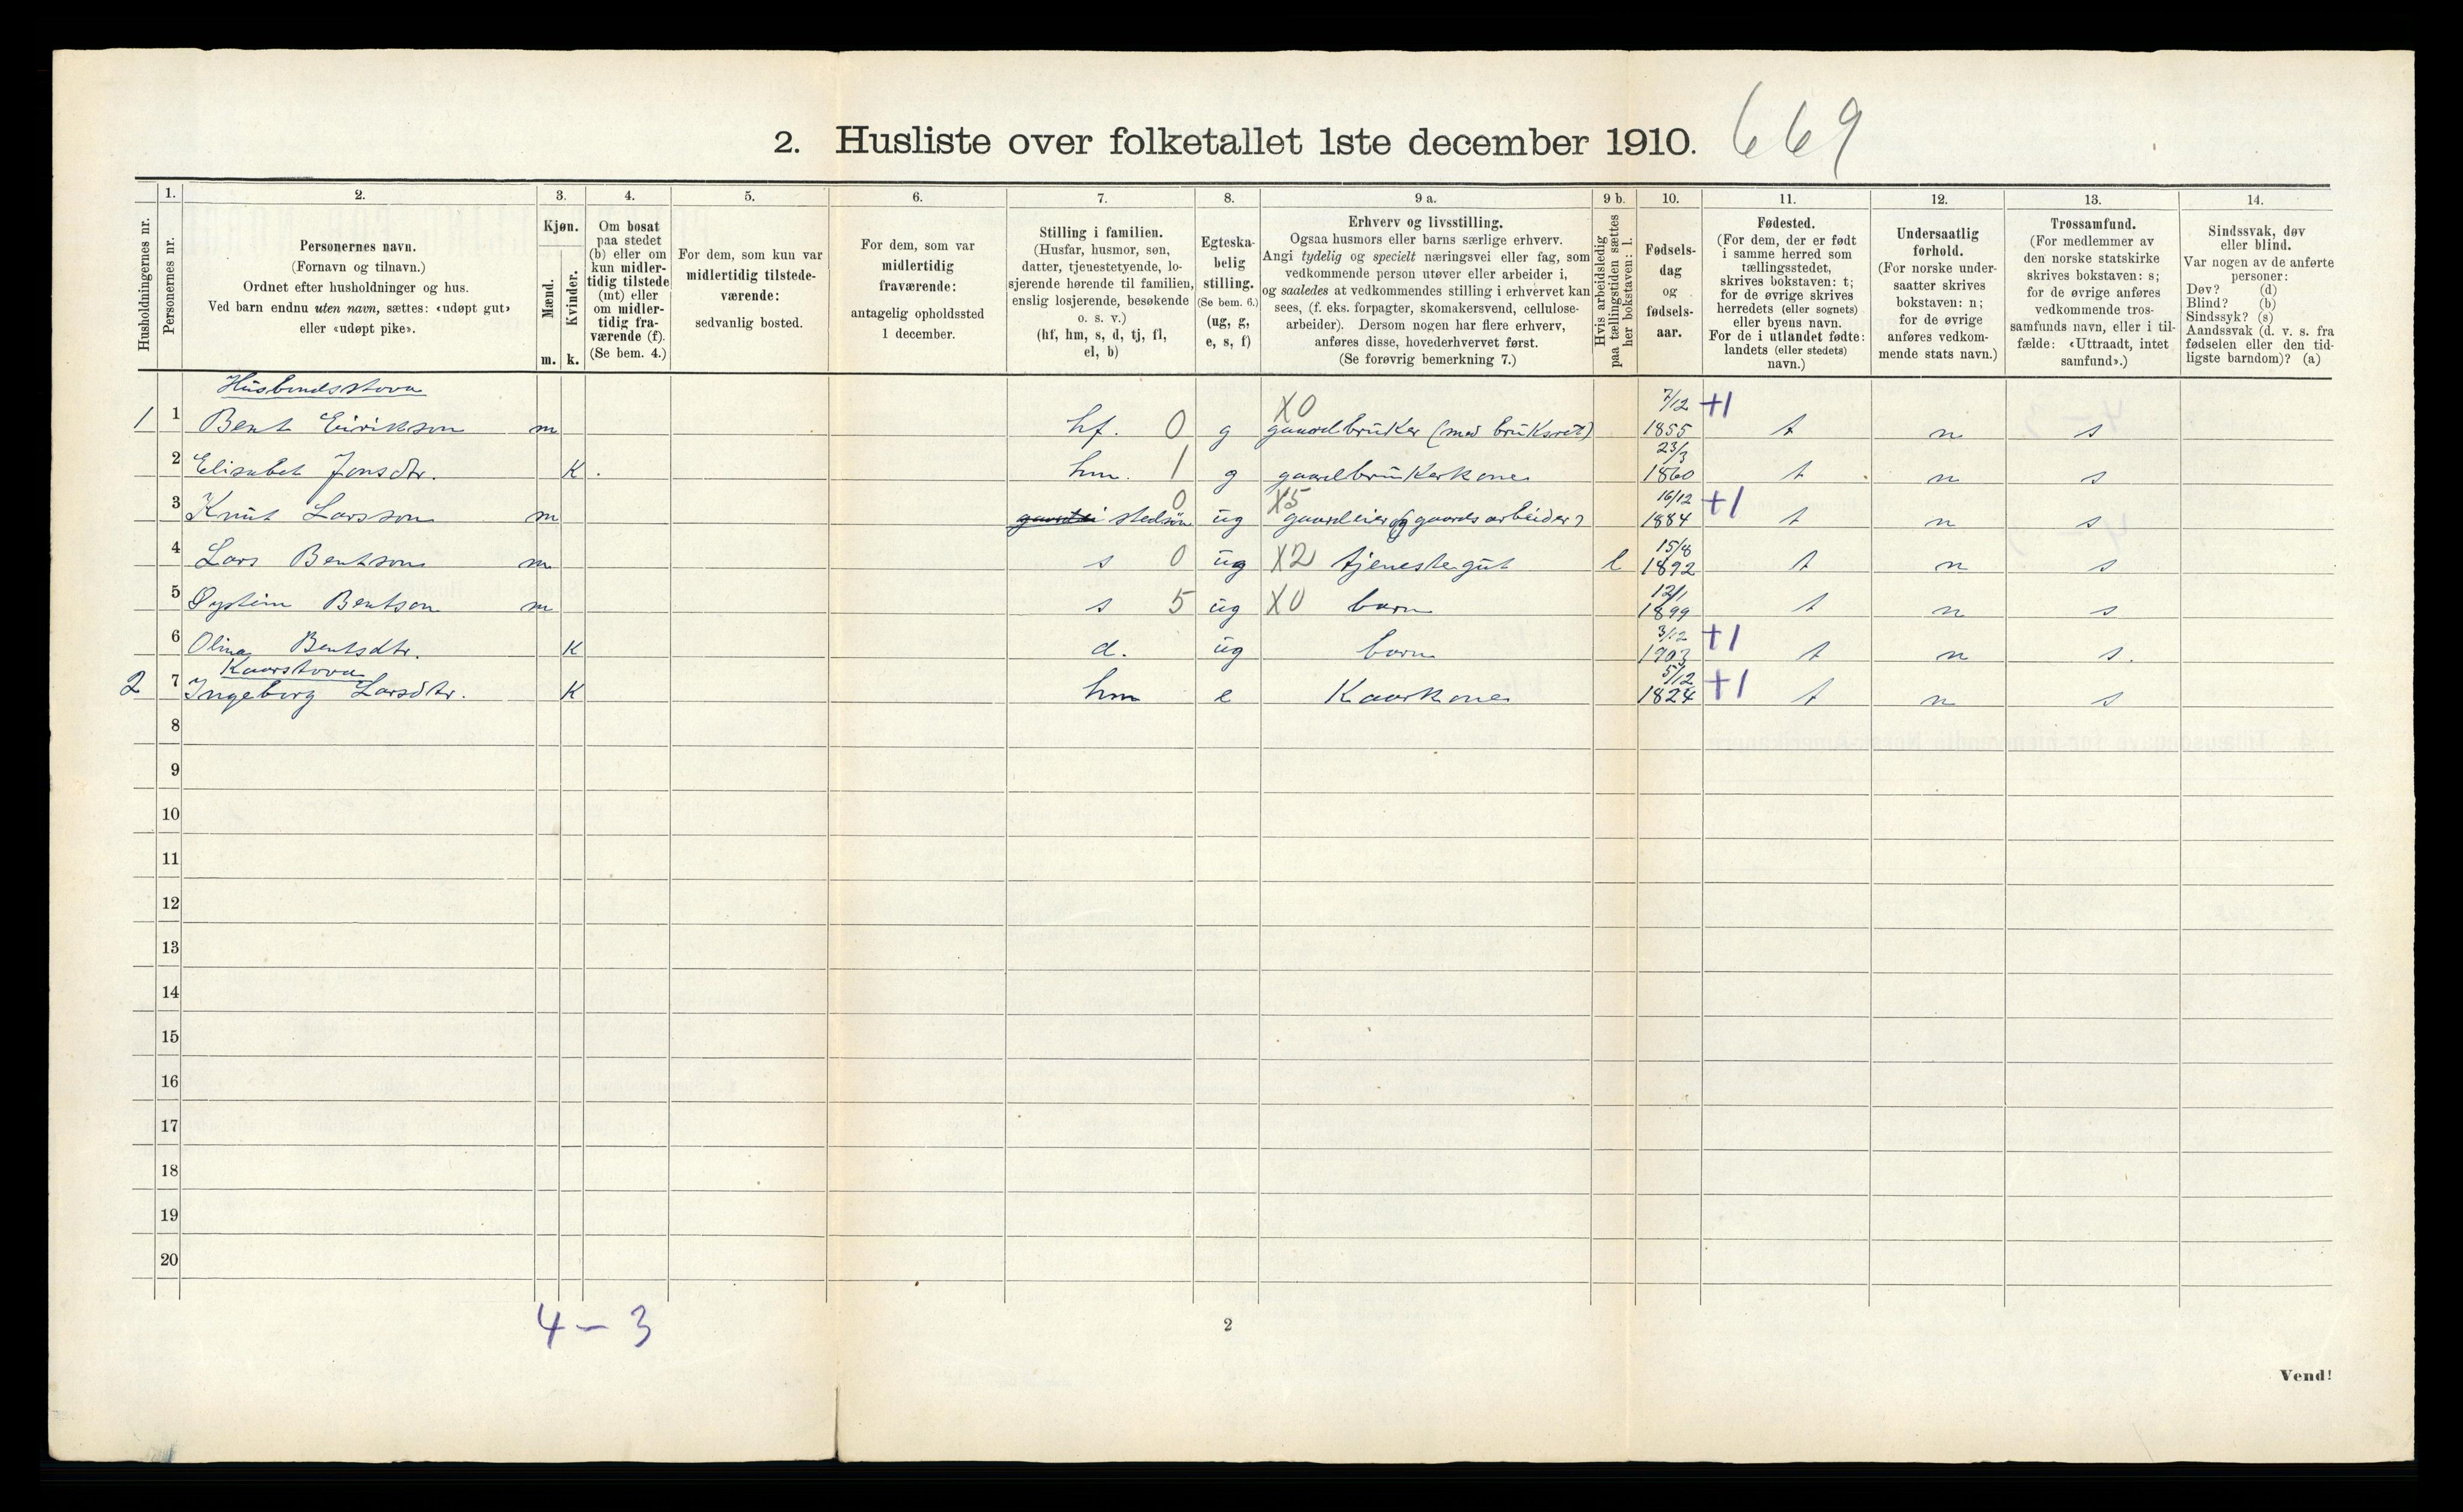 2. Husliste over folketallet 1ste december 1910. 669
Husholdningernes nr.
1.
Personernes nr.
2.
Personernes navn.
(Fornavn og tilnavn.)
Ordnet efter husholdninger og hus.
Ved barn endnu uten navn, sættes: «udøpt gut»
eller «udøpt pike».
3.
Kjøn.
Mænd.
m.
Kvinder.
k.
4.
Om bosat
paa stedet
(b) eller om
kun midler-
tidig tilstede
(mt) eller
om midler-
tidig fra-
værende (f).
(Se bem. 4.)
5.
For dem, som kun var
midlertidig tilstede-
værende:
sedvanlig bosted.
6.
For dem, som var
midlertidig
fraværende:
antagelig opholdssted
1 december.
7.
Stilling i familien.
(Husfar, husmor, søn,
datter, tjenestetyende, lo-
sjerende hørende til familien,
enslig losjerende, besøkende
o. s. v.)
(hf, hm, s, d, tj, fl,
el, b)
8.
Egteska-
belig
stilling.
(Se bem. 6.)
(ug, g,
e, s, f)
9 a.
Erhverv og livsstilling.
Ogsaa husmors eller barns særlige erhverv.
Angi tydelig og specielt næringsvei eller fag, som
vedkommende person utøver eller arbeider i,
og saaledes at vedkommendes stilling i erhvervet kan
sees, (f. eks. forpagter, skomakersvend, cellulose-
arbeider). Dersom nogen har flere erhverv,
anføres disse, hovederhvervet først.
(Se forøvrig bemerkning 7.)
9 b.
Hvis arbeidsledig
paa tællingstiden sættes
her bokstaven: l.
10.
Fødsels-
dag
og
fødsels-
aar.
11.
Fødested.
(For dem, der er født
i samme herred som
tællingsstedet,
skrives bokstaven: t;
for de øvrige skrives
herredets (eller sognets)
eller byens navn.
For de i utlandet fødte:
landets (eller stedets)
navn.)
12.
Undersaatlig
forhold.
(For norske under-
saatter skrives
bokstaven: n;
for de øvrige
anføres vedkom-
mende stats navn.)
13.
Trossamfund.
(For medlemmer av
den norske statskirke
skrives bokstaven: s;
for de øvrige anføres
vedkommende tros-
samfunds navn, eller i til-
fælde: «Uttraadt, intet
samfund».)
14.
Sindssvak, døv
eller blind.
Var nogen av de anførte
personer:
Døv? (d)
Blind? (b)
Sindssyk? (s)
Aandssvak (d. v. s. fra
fødselen eller den tid-
ligste barndom)? (a)
Husbondsstova
1 1 Bent Eirikson m hf. 0 g X0 gaardbruker (med bruksret) 7/12 1855 +1 t n s
2 Elisabet Jonsdtr. K. hm. 1 g gaardbrukerkone 23/3 1860 t n s
3 Knut Larsson m stedsøn 0 ug X5 gaardeier og gaardsarbeider 16/12 1884 +1 t n s
4 Lars Bentson m s 0 ug X2 tjenestegut l 15/8 1892 t n s
5 Øystein Bentson m s 5 ug X0 barn 12/1 1899 t n s
6 Olina Bentsdtr. K d. ug barn 3/12 1903 +1 t n s.
Kaarstova
2 7 Ingeborg Larsdtr. K hm e Kaarkone 5/12 1824 +1 t n s
8
9
10
11
12
13
14
15
16
17
18
19
20
4 – 3
2
Vend!